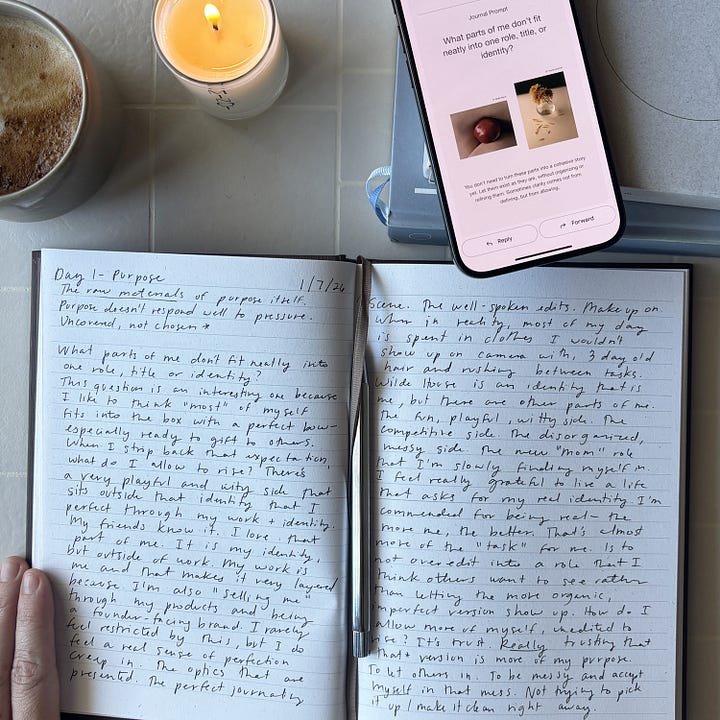 Journal Prompt
What parts of me don't fit
neatly into one role, title, or
identity?
You don't need to turn these parts into a cohesive story
yet. Let them exist as they are, without organizing or
refining them. Sometimes clarity comes not from
defining, but from allowing.
Reply
Forward
Day 1 - Purpose
1/7/26
The raw materials of purpose itself.
Purpose doesn't respond well to pressure.
Uncovered, not chosen *
What parts of me don't fit neatly into
one role, title or identity?
This question is an interesting one because
I like to think "most" of myself
fits into the box with a perfect bow-
especially ready to gift to others.
When I strip back that expectation,
what do I allow to rise? There's
a very playful and witty side that
sits outside that identity that I
perfect through my work + identity.
My friends know it. I love that
part of me. It is my identity,
but outside of work. My work is
me and that makes it very layered
because I'm also "selling me"
through my products and being
a founder-facing brand. I rarely
feel restricted by this, but I do
feel a real sense of perfection
creep in. The optics that are
presented. The perfect journaling
Scene. The well-spoken edits. Makeup on.
When in reality, most of my day
is spent in clothes I wouldn't
show up on camera with, 3 day old
hair and rushing between tasks.
Wilde House is an identity that is
me, but there are other parts of me.
The fun, playful, witty side. The
competitive side. The disorganized,
messy side. The new "mom" role
that I'm slowly finding myself in.
I feel really grateful to live a life
that asks for my real identity. I'm
commended for being real- the
more me, the better. That's almost
more of the "task" for me. Is to
not over edit into a role that I
think others want to see rather
than letting the more organic,
imperfect version show up. How do I
allow more of myself, unedited to
rise? It's trust. Really trusting that
that* version is more of my purpose.
To let others in. To be messy and accept
myself in that mess. Not trying to pick
it up / make it clean right away.